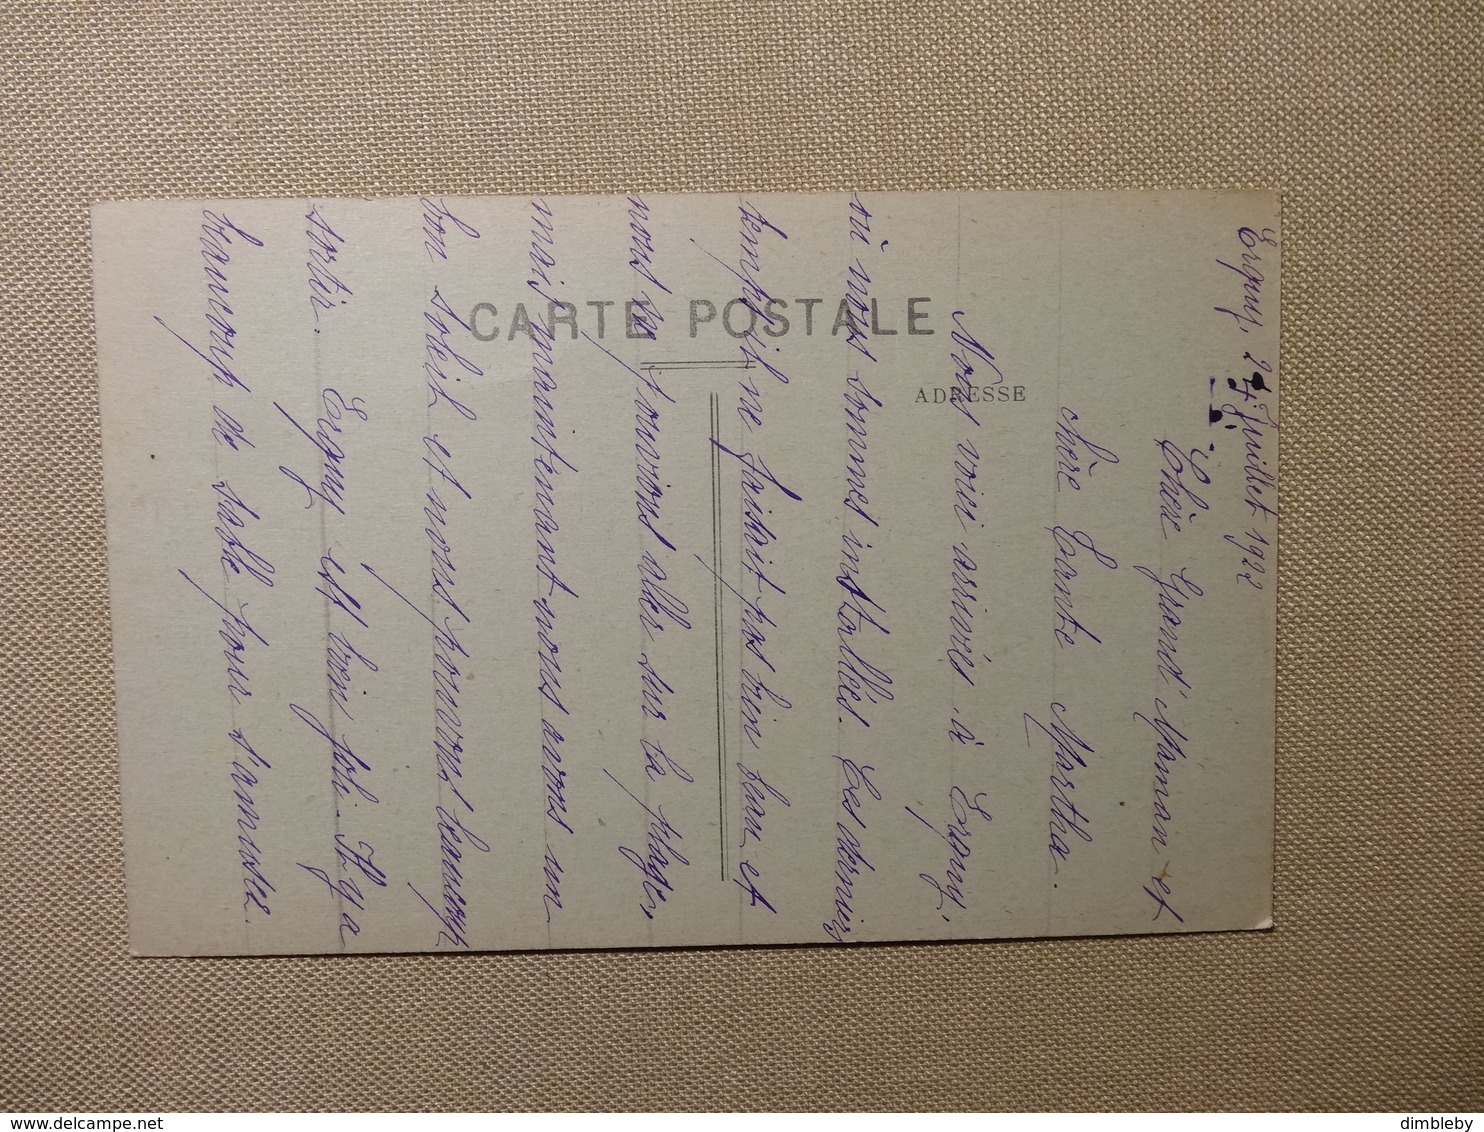 Erquy, 24 Juillet 1922
Chère Grand' Maman et
chère Tante Martha.
Nous voici arrivés à Erquy,
où nous sommes installés. Ces derniers
temps il ne faisait pas bien beau et
nous ne pouvions aller sur la plage,
mais maintenant nous avons un
bon soleil et nous pouvons beaucoup
sortir. Erquy est bien joli. Il y a
beaucoup de sable pour s'amuser.
CARTE POSTALE
ADRESSE
delcampe.net
dimbleby